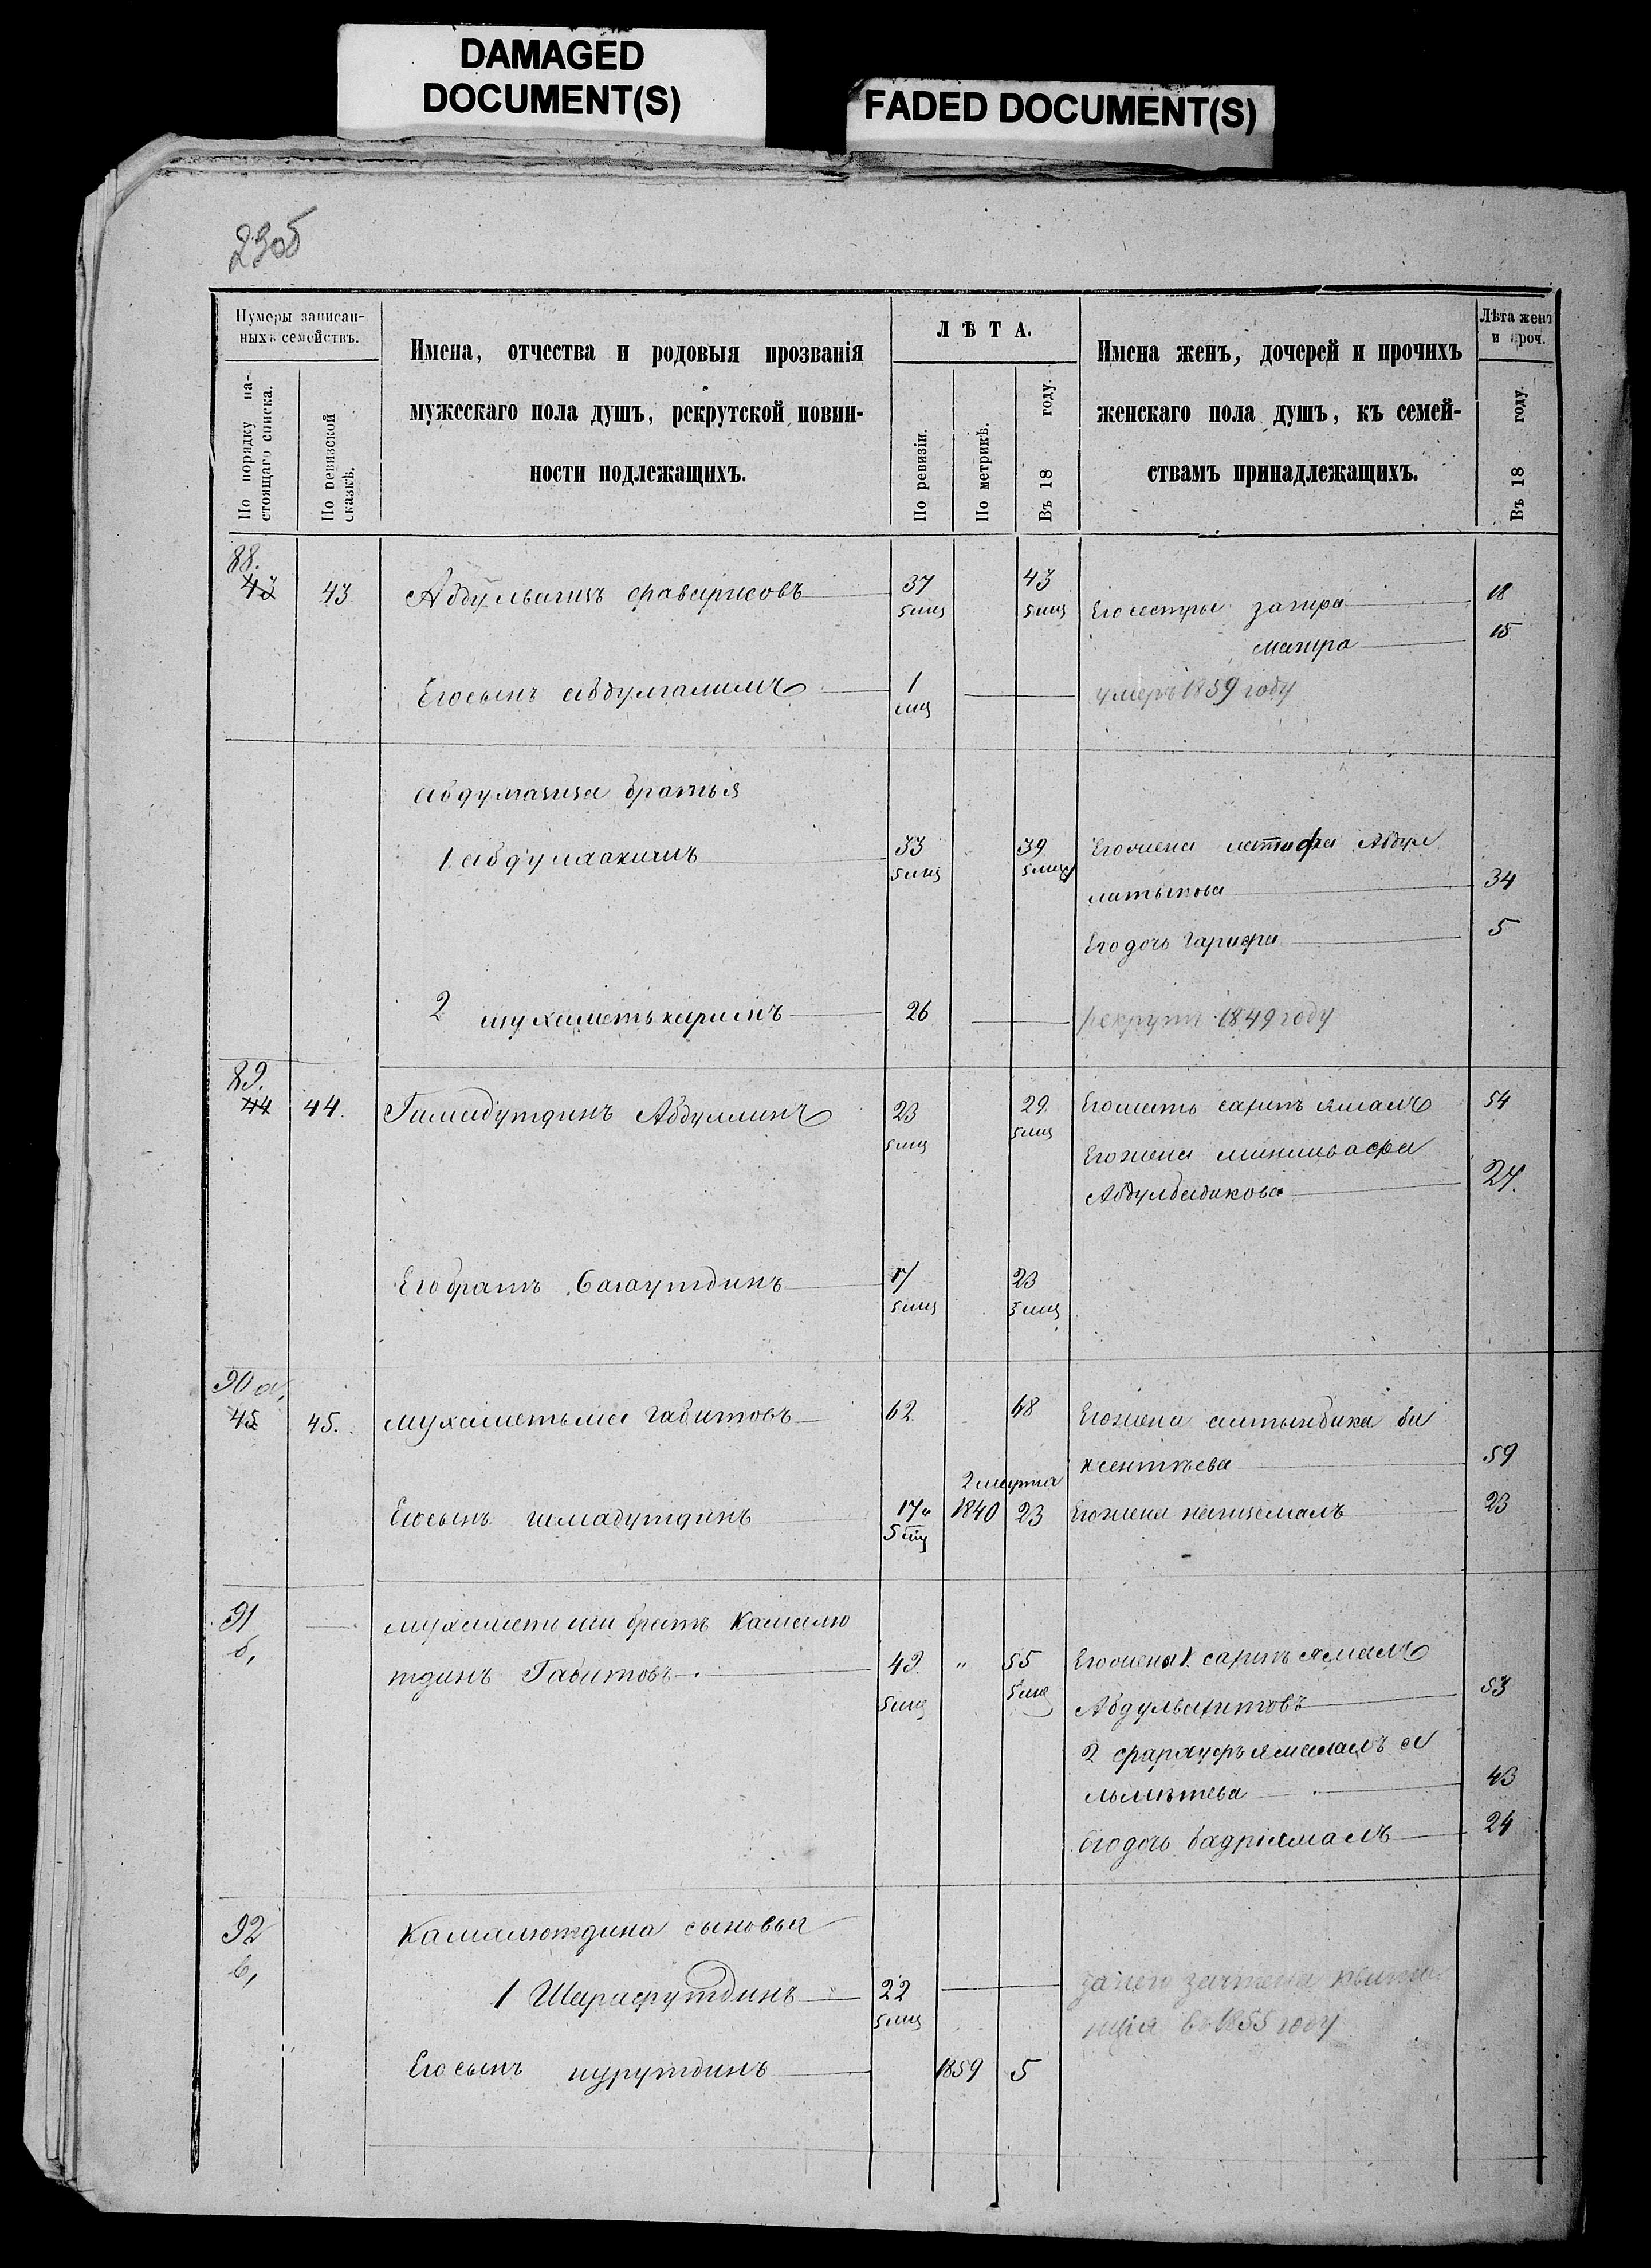 DAMAGED
DOCUMENT(S)
FADED DOCUMENT(S)
Нумеры записан-
ныхъ семействъ.
По порядку на-
стоящаго списка.
По ревизской
сказкѣ.
Имена, отчества и родовыя прозванія
мужескаго пола душъ, рекрутской повин-
ности подлежащихъ.
ЛѢТА.
По ревизіи.
По метрикѣ.
Въ 18 году.
Имена женъ, дочерей и прочихъ
женскаго пола душъ, къ семей-
ствамъ принадлежащихъ.
Лѣта женъ
и проч.
Въ 18 году.
88.
43 43 Абдульвагизъ Фаварисовъ 37 43
5 мц 5 мц Его сестры загира 18
магира 15
Его сынъ абдулгалимъ 1 умеръ 1859 году
мц
абдулвагиза братья
1. абдулхакимъ 33 39 Его жена латифа Абдул
5 мц 5 мц
латыпова 34
Его дочь Гарифа 5
2 мухаметькаримъ 26 рекрутъ 1849 году
89.
44 44. Гимадутдинъ Абдуллинъ 23 29. Его мать сарипъ ямалъ 54
5 мц 5 мц
Его жена
Абдулбадикова 27.
Его братъ Багаутдинъ 17 23
5 мц 5 мц
90 а,
45 45. мухаметьша Габитовъ 62 68 Его жена алтынбика би
ксентьева 59
2 марта
Его сынъ гимадутдинъ 17 1840 23 Его жена 23
5 мц
91 мухаметьши братъ Камалю
б,
тдинъ Габитовъ 49. " 55 Его жена 1. сарипъ ямалъ
5 мц 5 мц
Абдульвагитовъ 53
2 фархуръямамалъ а
льметева 43
Его дочь бадріямалъ 24
92 Камалютдина сыновья
в,
1 Шарафутдинъ 22 за него зачтена квита
5 мц
нція въ 1855 году
Его сынъ нурутдинъ 1859 5